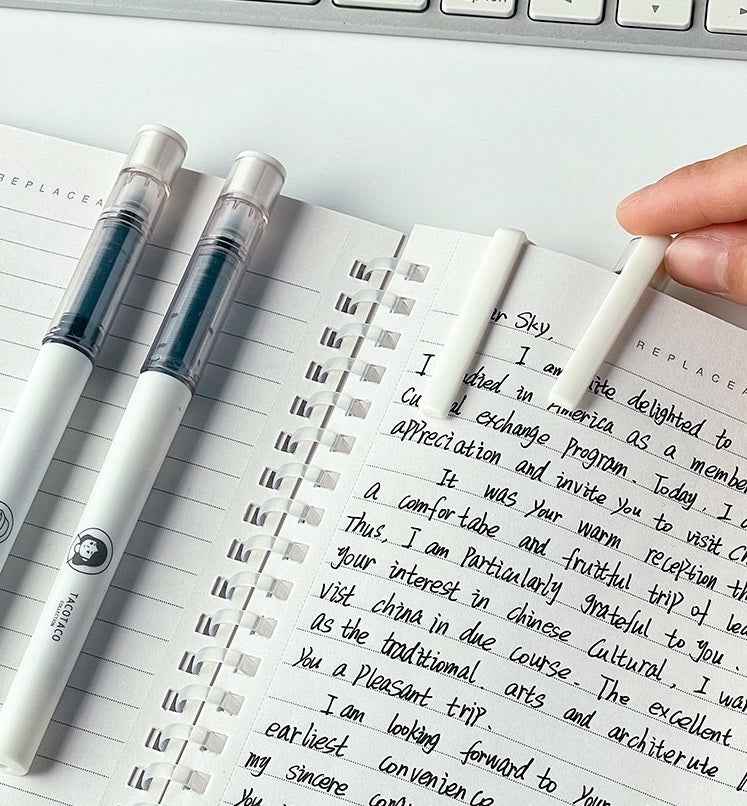 REPLACEA
ption
TACOTACO
REPLACEA
Sky,
I am delighted to
I in America as a member
exchange program. Today, I
appreciation and invite you to visit
It was your warm reception
a comfortabe and fruitful trip of
Thus, I am Particularly grateful to you.
Your interest in chinese Cultural, I
vist china in due course. The excellent
as the traditional. arts and architerute
You a Pleasant trip.
I am looking forward to Your
earliest convenience
my sincere
You